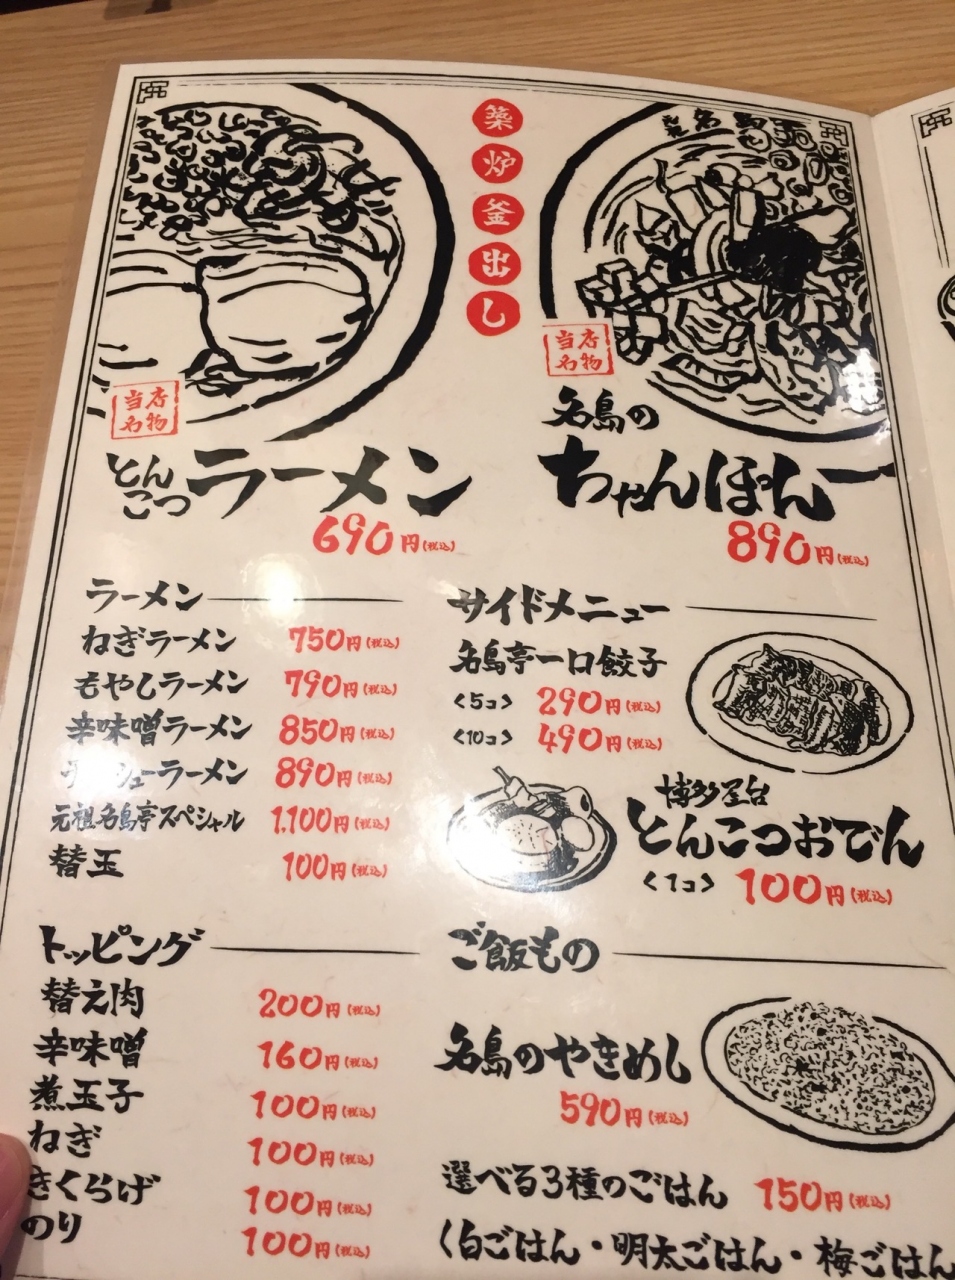 築炉釜出し
当店
名物
とんこつラーメン
690円(税込)
当店
名物
名島の
ちゃんぽん
890円(税込)
ラーメン
ねぎラーメン 750円(税込)
もやしラーメン 790円(税込)
辛味噌ラーメン 850円(税込)
シューラーメン 890円(税込)
元祖名島亭スペシャル 1,100円(税込)
替玉 100円(税込)
サイドメニュー
名島亭一口餃子
<5コ> 290円(税込)
<10コ> 490円(税込)
博多屋台
とんこつおでん
<1コ> 100円(税込)
トッピング
替え肉 200円(税込)
辛味噌 160円(税込)
煮玉子 100円(税込)
ねぎ 100円(税込)
きくらげ 100円(税込)
のり 100円(税込)
ご飯もの
名島のやきめし
590円(税込)
選べる3種のごはん 150円(税込)
〈白ごはん・明太ごはん・梅ごはん